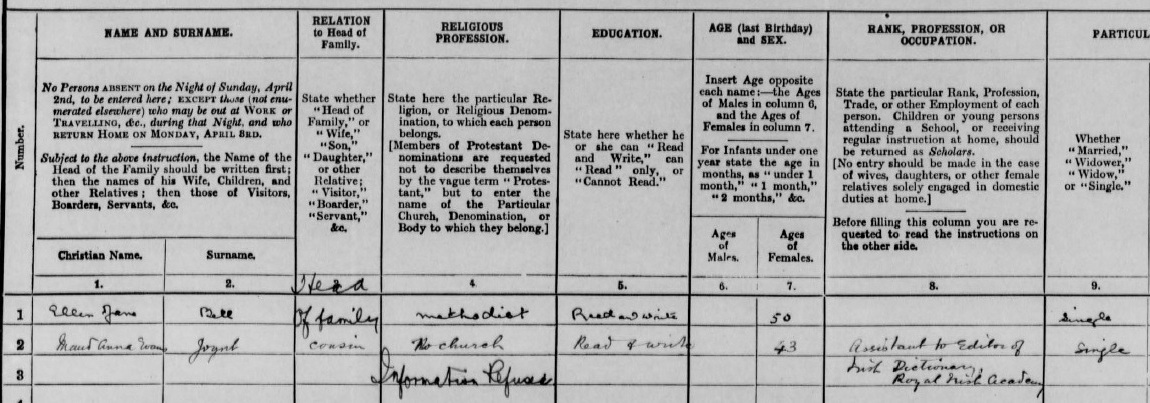 NAME AND SURNAME.
RELATION
to Head of
Family.
RELIGIOUS
PROFESSION.
EDUCATION.
AGE (last Birthday)
and SEX.
RANK, PROFESSION, OR
OCCUPATION.
PARTICUL
Number.
No Persons ABSENT on the Night of Sunday, April
2nd, to be entered here; EXCEPT those (not enu-
merated elsewhere) who may be out at WORK or
TRAVELLING, &c., during that Night, and who
RETURN HOME ON MONDAY, APRIL 3RD.
Subject to the above instruction, the Name of the
Head of the Family should be written first;
then the names of his Wife, Children, and
other Relatives; then those of Visitors,
Boarders, Servants, &c.
Christian Name.
Surname.
State whether
"Head of
Family," or
"Wife,"
"Son,"
"Daughter,"
or other
Relative;
"Visitor,"
"Boarder,"
"Servant,"
&c.
State here the particular Re-
ligion, or Religious Denom-
ination, to which each person
belongs.
[Members of Protestant De-
nominations are requested
not to describe themselves
by the vague term "Protes-
tant," but to enter the
name of the Particular
Church, Denomination, or
Body to which they belong.]
State here whether he
or she can "Read
and Write," can
"Read" only, or
"Cannot Read."
Insert Age opposite
each name:—the Ages
of Males in column 6,
and the Ages of
Females in column 7.
For Infants under one
year state the age in
months, as "under 1
month," "1 month,"
"2 months," &c.
Ages
of
Males.
Ages
of
Females.
State the particular Rank, Profession,
Trade, or other Employment of each
person. Children or young persons
attending a School, or receiving
regular instruction at home, should
be returned as Scholars.
[No entry should be made in the case
of wives, daughters, or other female
relatives solely engaged in domestic
duties at home.]
Before filling this column you are re-
quested to read the instructions on
the other side.
Whether
"Married,"
"Widower,"
"Widow,"
or "Single."
1. 2. Head 4. 5. 6. 7. 8. 9.
1 Ellen Jane Bell Of family methodist Read and write 50 Single
2 Maud Anna Evans Joynt cousin No church Read & write 43 Assistant to Editor of Single
3 Information Refused Irish Dictionary,
Royal Irish Academy